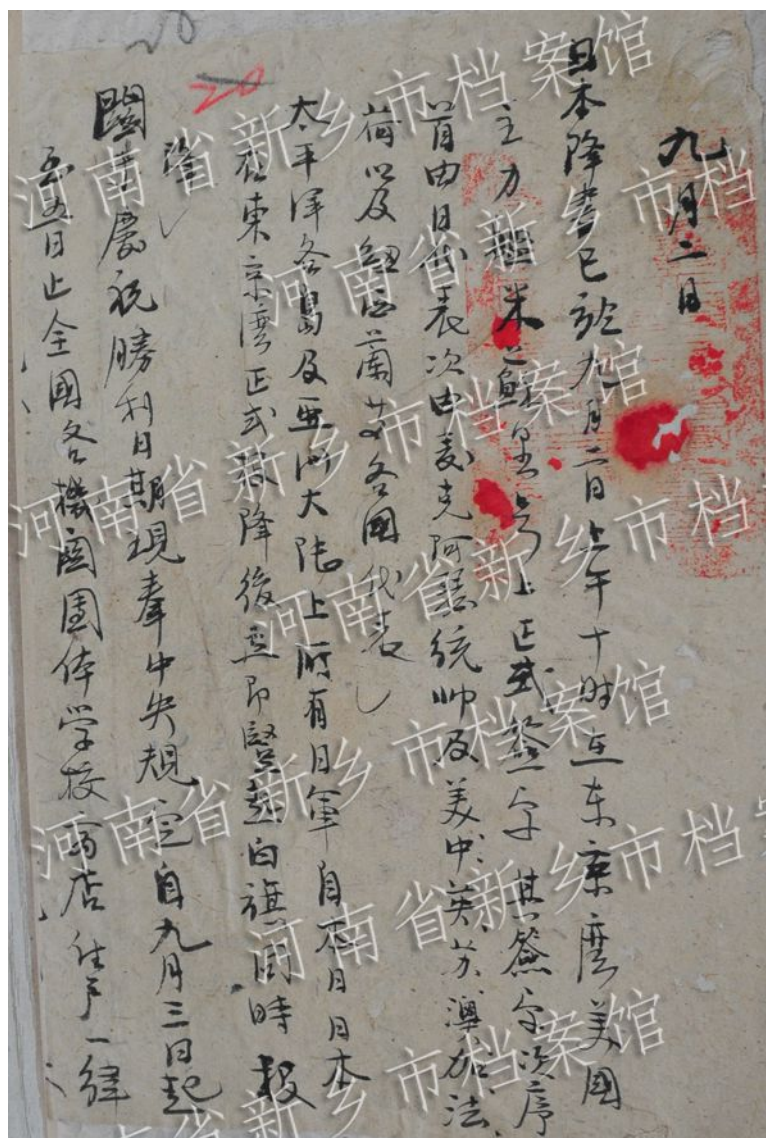 九月二日
日本降書已於九月二日上午十时在东京湾美國
主力艦米苏里号上正式簽字其簽字次序
首由日代表次由麦克阿瑟统帅及美中英苏澳加法
荷以及纽西蘭等各國代表
太平洋各島及亜洲大陆上所有日軍自本日日本
在東京灣正式投降後立即豎起白旗同時投
降
關於慶祝勝利日期現奉中央規定自九月三日起
至五日止全國各機関團体学校商店住户一律
20
河南省新乡市档案馆